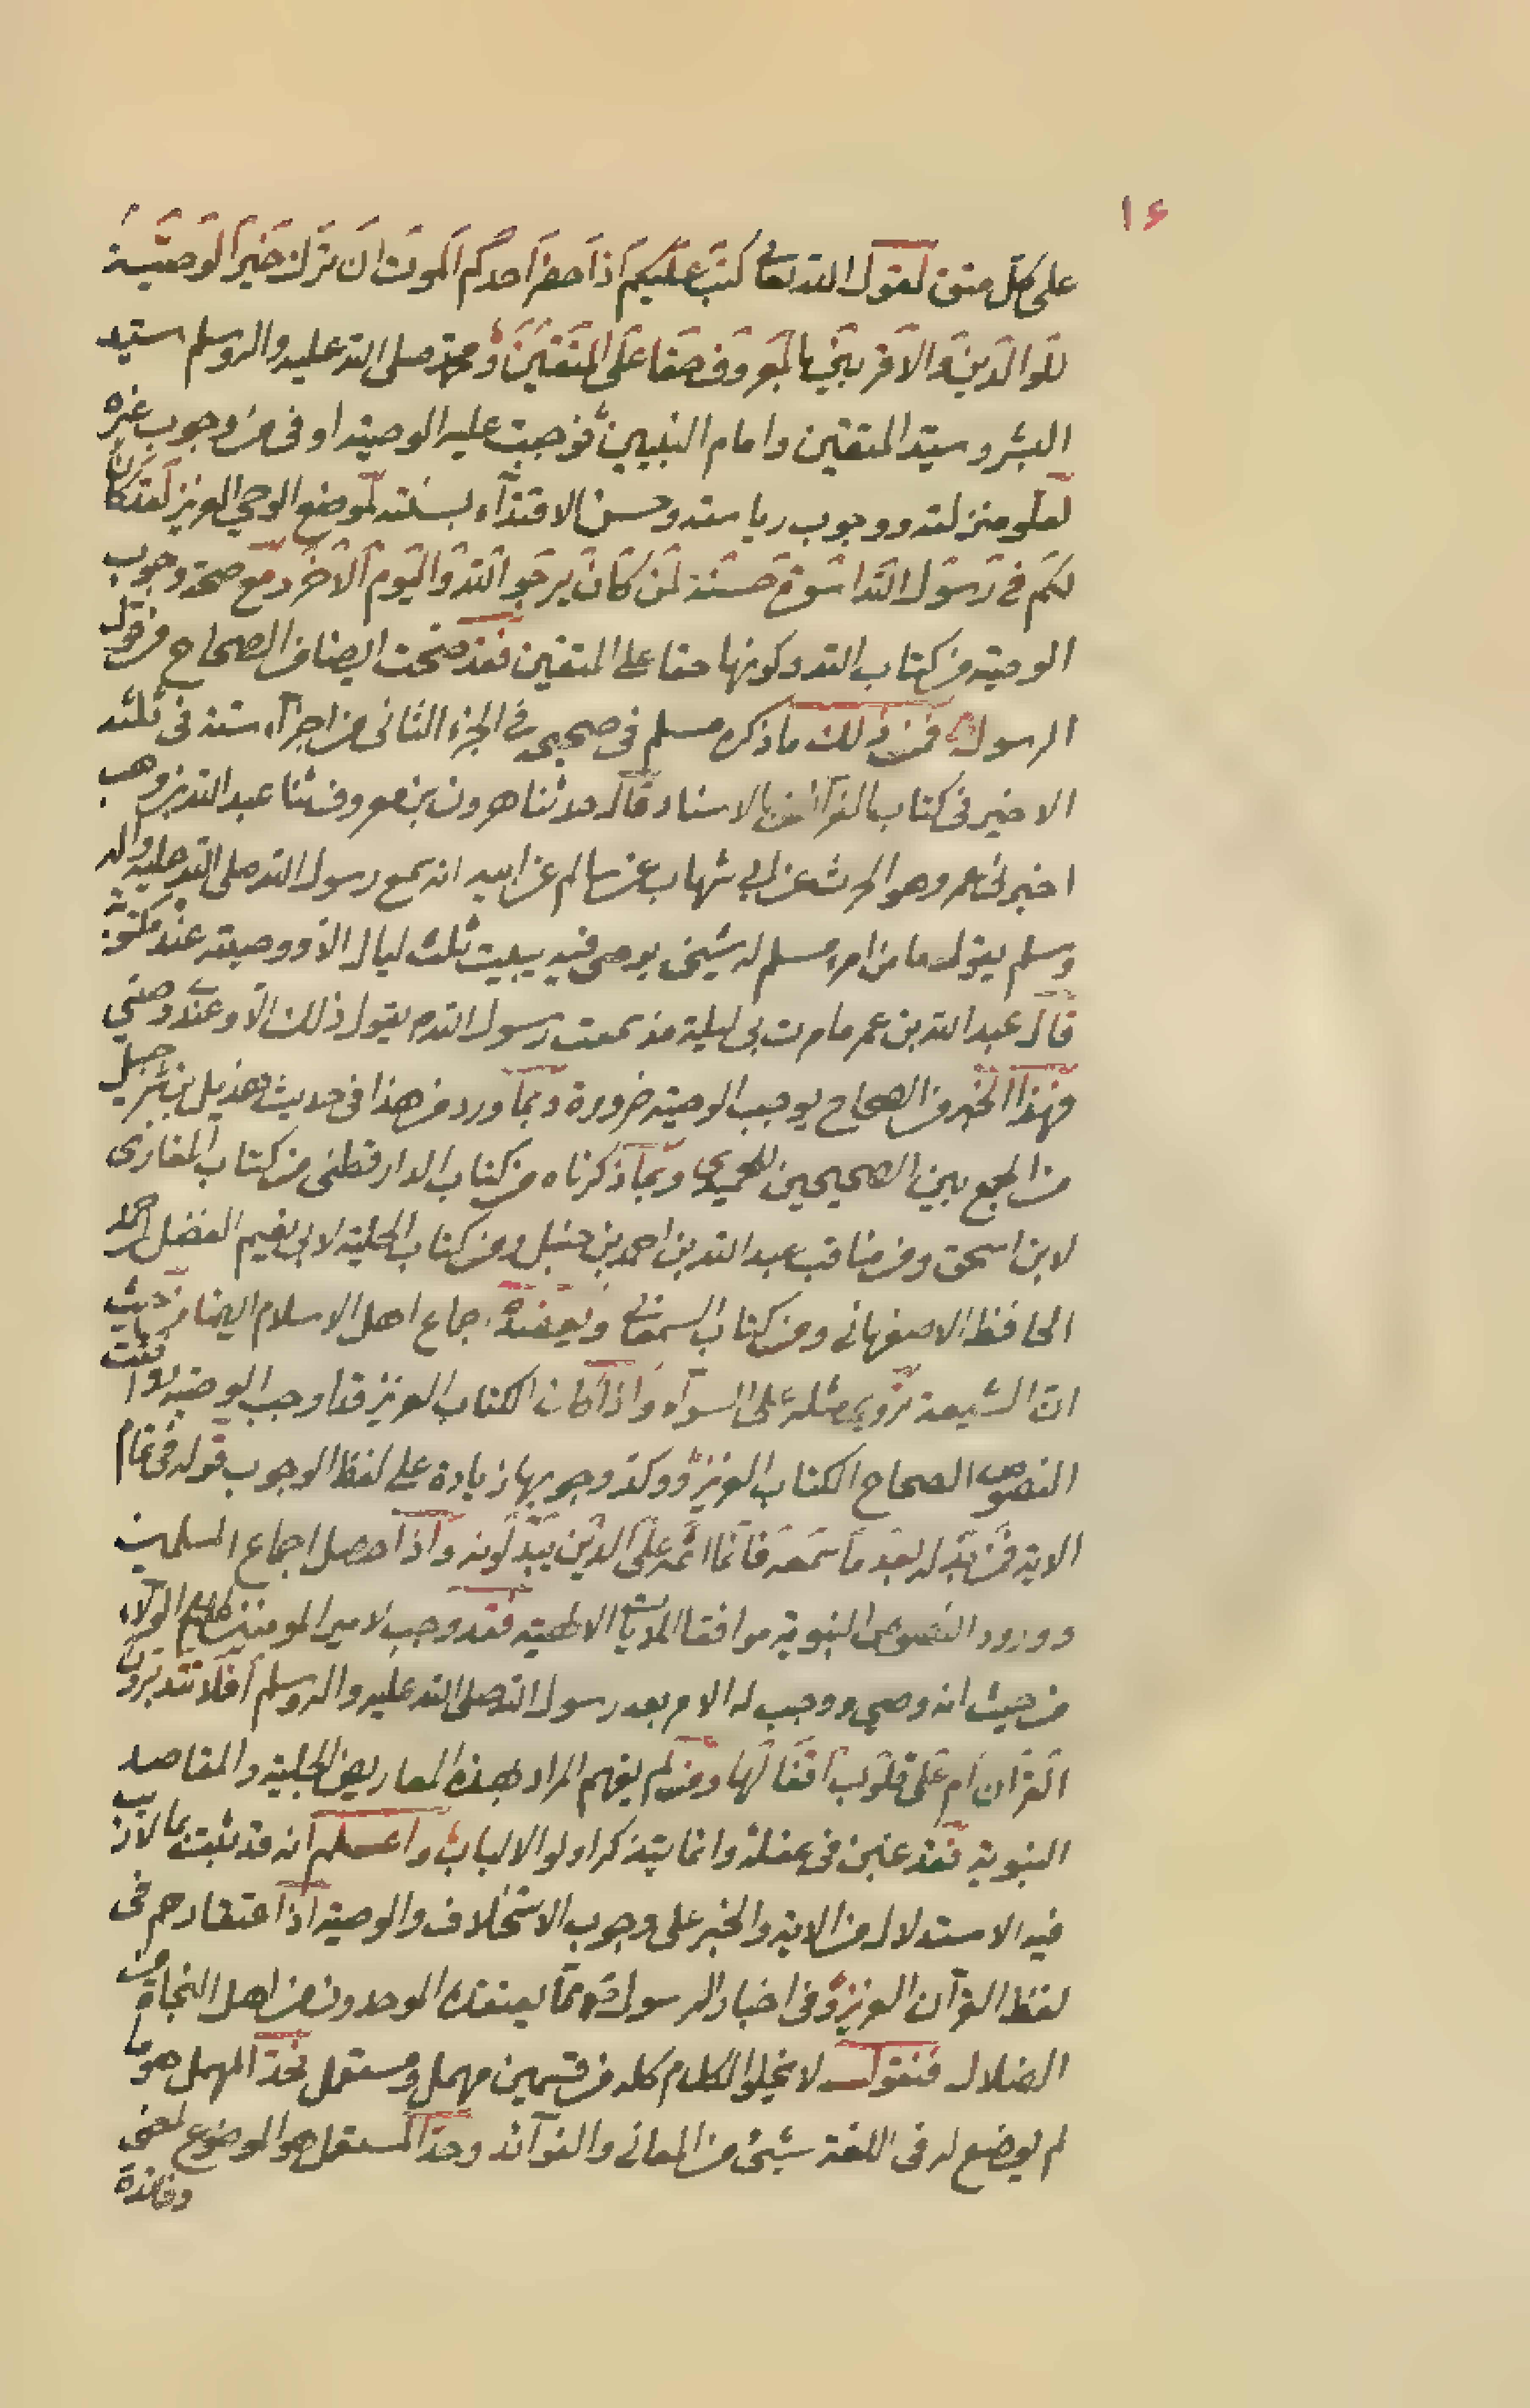 ۱۶
على كلّ متق لقول الله تعالى كُتِبَ عليكم اذا حضر احدكم الموت ان ترك خيرا الوصيّة
للوالدين والاقربين بالمعروف حقّا على المتّقين ومحمّد صلى الله عليه واله وسلم سيّد
البشر وسيّد المتقين وامام النبيين فوجبت عليه الوصية اوفى من وجوب غيره
لعلو منزلته ووجوب رياسته وحسن الاقتدآء بسنّته لموضع الوحى العزيز لقد كان
لكم فى رسول الله اسوة حسنة لمن كان يرجو الله واليوم الآخر ومع صحة وجوب
الوصية من كتاب الله وكونها حقا على المتقين فقد صحّت ايضا فى الصحاح من قول
الرسول فمن ذلك ما ذكره مسلم فى صحيحه فى الجزء الثانى من اجزآء ستة فى ثلثه
الاخير فى كتاب الفرائض بالاسناد قال حدثنا هرون بن معروف ثنا عبد الله بن وهب
اخبرنى عمر وهو الحرث عن ابى شهاب عن سالم عن ابيه انه سمع رسول الله صلى الله عليه واله
وسلم يقول ما من امرء مسلم له شيئ يوصى فيه يبيت ثلث ليال الّا ووصيته عنده مكتوبة
قال عبد الله بن عمر ما مرت بى ليلة مذ سمعت رسول الله م يقول ذلك الّا وعندى وصيّتي
فهذا الخبر من الصحاح يوجب الوصية ضرورة وبما ورد من هذا فى حديث هذيل بن شرحبيل
من الجمع بين الصحيحين للحميدى وبما ذكرناه من كتاب الدارقطنى من كتاب المغازى
لابن اسحق ومن مناقب عبد الله بن احمد بن حنبل ومن كتاب الحلية لابى نعيم الفضل احمد
الحافظ الاصفهانى ومن كتاب السمعانى ويعضده اجماع اهل الاسلام ايضا من حيث
انّ الشيعة تروى مثله على السوآء واذا كان الكتاب العزيز قد اوجب الوصية ووافقت
النصوص الصحاح الكتاب العزيز ووكد وجوبها زيادة على لفظ الوجوب قوله فى تمام
الاية فمن بدّله بعد ما سمعه فانّما اثمه على الذين يبدّلونه واذا حصل اجماع المسلمين
وورود النصوص النبوية موافقا للايات الالهية فقد وجب لامير المومنين الولآء
من حيث انه وصي ووجب له الامر بعد رسول الله صلى الله عليه واله وسلم أفلا يتدبّرون
القران ام على قلوب اقفالها ومن لم يفهم المراد بهذه المعاريض الجلية والمقاصد
النبوية فقد غبن فى عقله وانما يتذكر اولو الالباب واعلم انه قد ثبت بما لا ريب
فيه الاستدلال من الاية والخبر على وجوب الاستخلاف والوصية اذا اعتقادهم فى
لفظ القرآن العزيز وفى اخبار الرسول مما يعتقده الموحدون من اهل النجاة من
الضلال فنقول لا يخلوا الكلام كله من قسمين مهمل ومستعمل فحدّ المهمل هو ما
لم يوضع له فى اللغة شيئ من المعانى والفوآئد وحدّ المستعمل هو الموضوع لمعنى
وفائدة